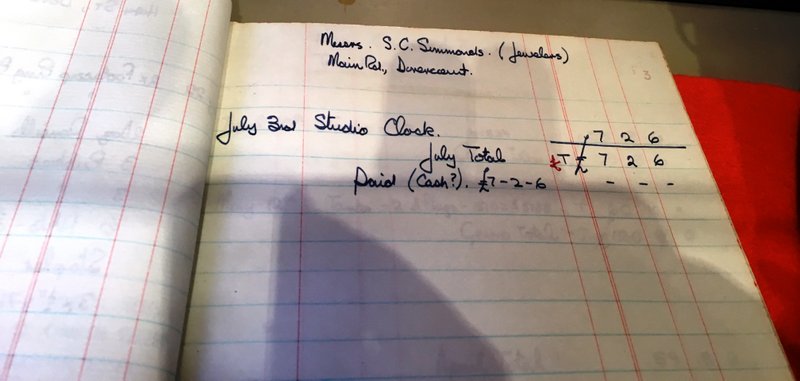 Messrs. S.C. Simmonds. (Jewelers)
Main Rd., Dovercourt.
3
July 3rd Studio Clock. £ 7 2 6
July Total £T £ 7 2 6
Paid (Cash?). £7-2-6 - - -